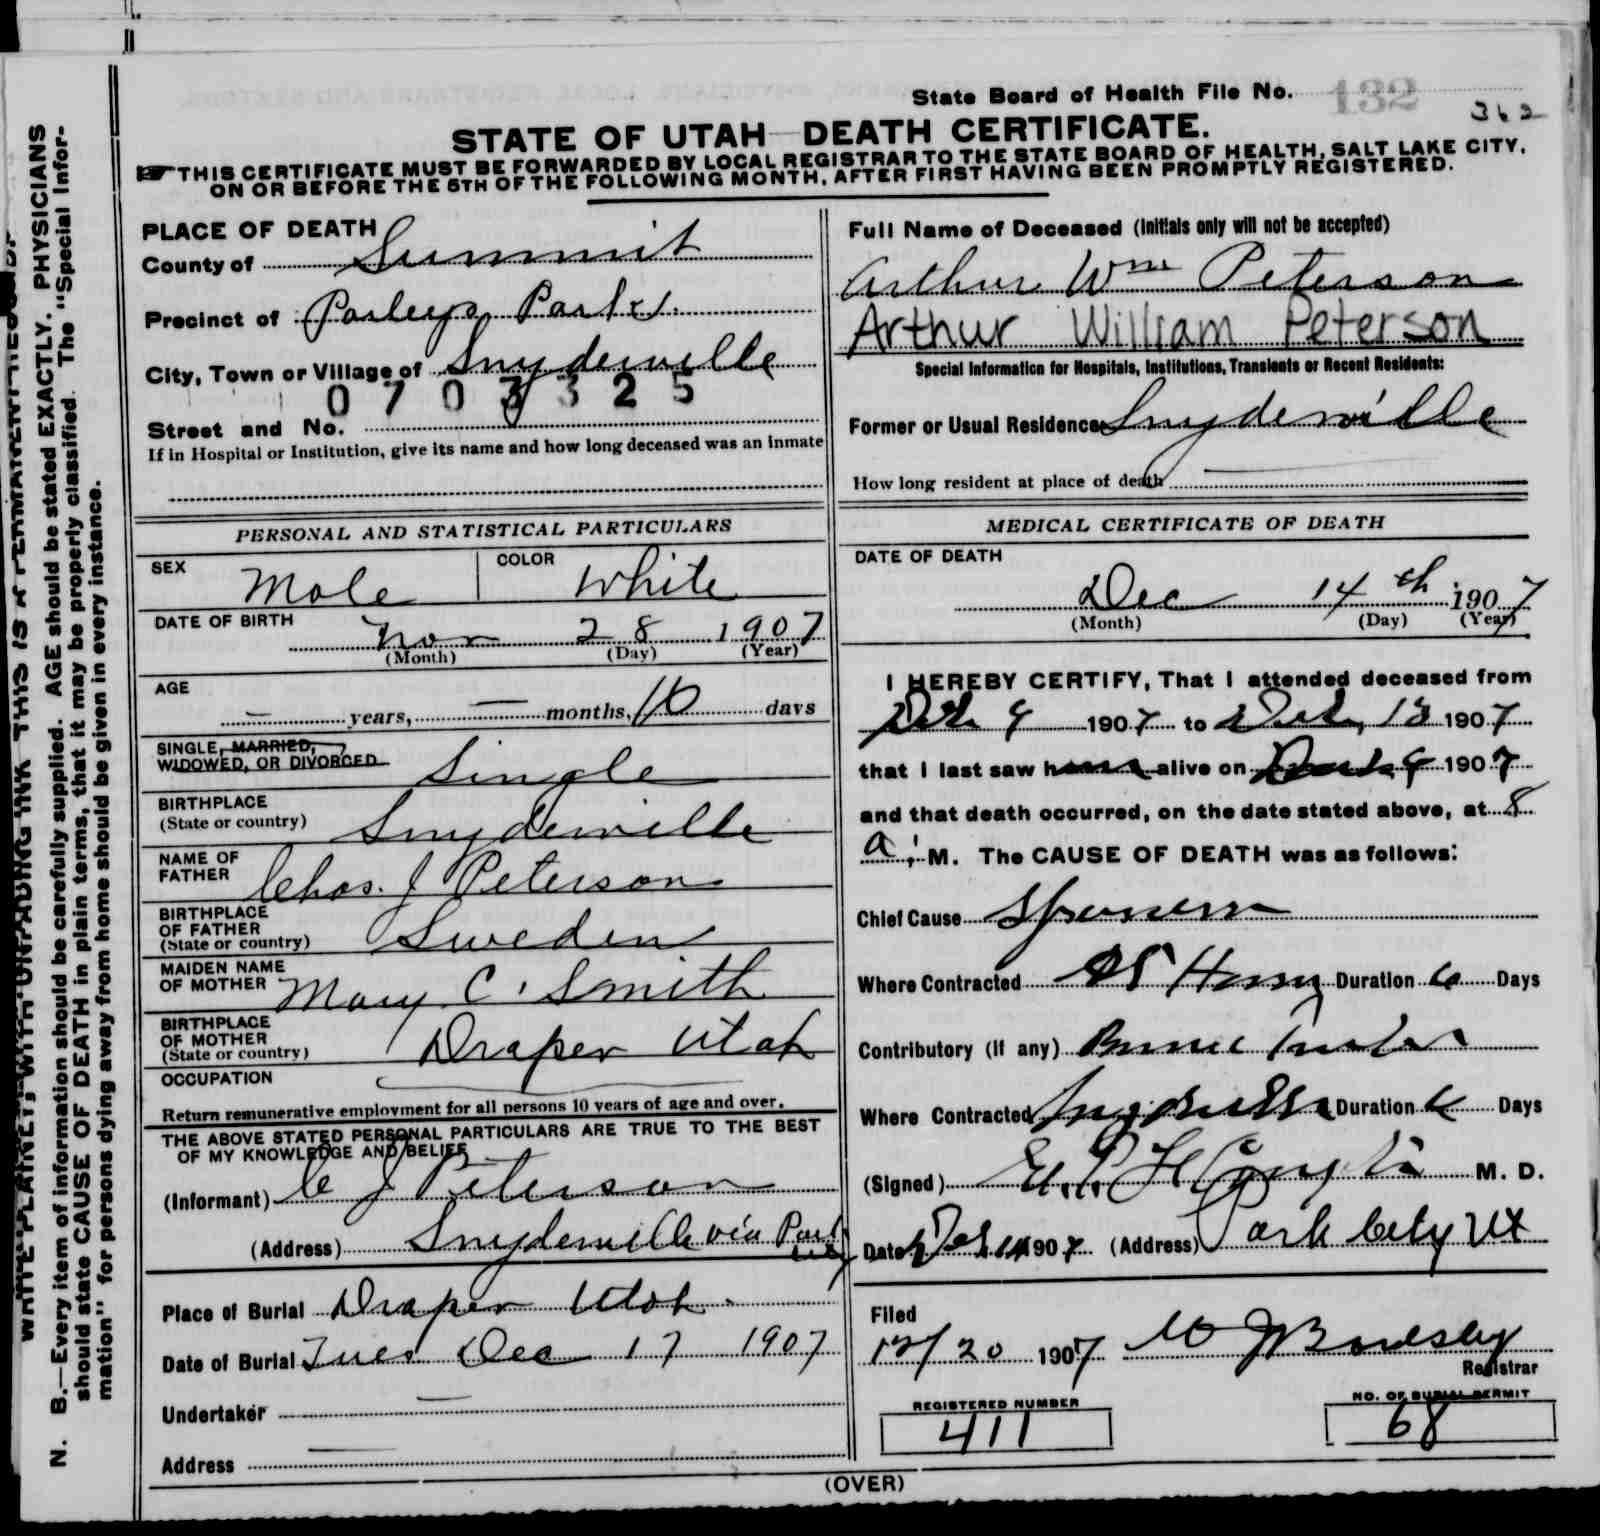 State Board of Health File No. 132
362
STATE OF UTAH—DEATH CERTIFICATE.
THIS CERTIFICATE MUST BE FORWARDED BY LOCAL REGISTRAR TO THE STATE BOARD OF HEALTH, SALT LAKE CITY,
ON OR BEFORE THE 5TH OF THE FOLLOWING MONTH, AFTER FIRST HAVING BEEN PROMPTLY REGISTERED.
WRITE PLAINLY, WITH UNFADING INK—THIS IS A PERMANENT
N. B.—Every item of information should be carefully supplied. AGE should be stated EXACTLY. PHYSICIANS
should state CAUSE OF DEATH in plain terms, that it may be properly classified. The "Special Infor-
mation" for persons dying away from home should be given in every instance.
PLACE OF DEATH
County of Summit
Precinct of Parleys Park
City, Town or Village of Snyderville
0703325
Street and No.
If in Hospital or Institution, give its name and how long deceased was an inmate
PERSONAL AND STATISTICAL PARTICULARS
SEX Male COLOR White
DATE OF BIRTH Nov 28 1907
(Month) (Day) (Year)
AGE — years, — months, 16 days
SINGLE, MARRIED,
WIDOWED, OR DIVORCED Single
BIRTHPLACE
(State or country) Snyderville
NAME OF
FATHER Chas. J Peterson
BIRTHPLACE
OF FATHER
(State or country) Sweden
MAIDEN NAME
OF MOTHER Mary C. Smith
BIRTHPLACE
OF MOTHER
(State or country) Draper Utah
OCCUPATION
Return remunerative employment for all persons 10 years of age and over.
THE ABOVE STATED PERSONAL PARTICULARS ARE TRUE TO THE BEST
OF MY KNOWLEDGE AND BELIEF
(Informant) C J Peterson
(Address) Snyderville via Park
City
Place of Burial Draper Utah.
Date of Burial Tues Dec 17 1907
Undertaker —
Address —
Full Name of Deceased (Initials only will not be accepted)
Arthur Wm Peterson
Arthur William Peterson
Special Information for Hospitals, Institutions, Transients or Recent Residents:
Former or Usual Residence Snyderville
How long resident at place of death —
MEDICAL CERTIFICATE OF DEATH
DATE OF DEATH
Dec 14th 1907
(Month) (Day) (Year)
I HEREBY CERTIFY, That I attended deceased from
Dec 9 1907 to Dec 13 1907
that I last saw him alive on Dec 9 1907
and that death occurred, on the date stated above, at 8
a. M. The CAUSE OF DEATH was as follows:
Chief Cause
Where Contracted At Home Duration 6 Days
Contributory (if any)
Where Contracted Snyderville Duration 6 Days
(Signed) M. D.
Date Dec 14 1907 (Address) Park City Ut
Filed
12/20 1907
Registrar
REGISTERED NUMBER
411
NO. OF BURIAL PERMIT
68
(OVER)